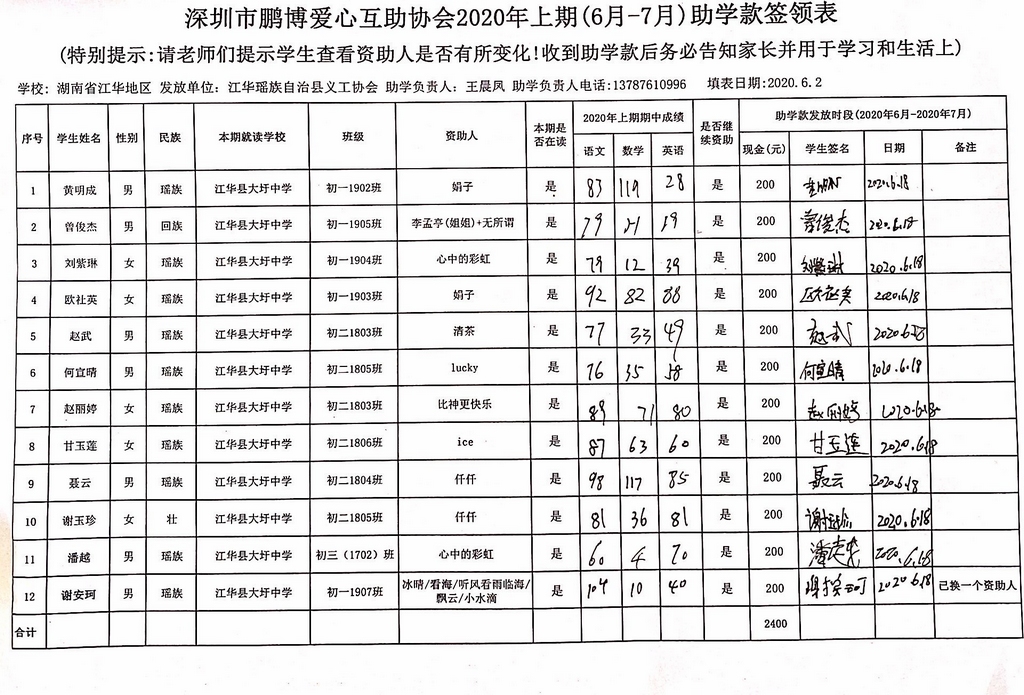 深圳市鹏博爱心互助协会2020年上期(6月-7月)助学款签领表
(特别提示:请老师们提示学生查看资助人是否有所变化!收到助学款后务必告知家长并用于学习和生活上)
学校: 湖南省江华地区 发放单位: 江华瑶族自治县义工协会 助学负责人: 王晨凤 助学负责人电话:13787610996 填表日期:2020.6.2
序号 学生姓名 性别 民族 本期就读学校 班级 资助人 本期是否在读 2020年上期期中成绩 是否继续资助 助学款发放时段(2020年6月-2020年7月)
语文 数学 英语 现金(元) 学生签名 日期 备注
1 黄明成 男 瑶族 江华县大圩中学 初一1902班 娟子 是 83 119 28 是 200 2020.6.18
2 曾俊杰 男 回族 江华县大圩中学 初一1905班 李孟亭(姐姐)+无所谓 是 79 21 19 是 200 曾俊杰 2020.6.18
3 刘紫琳 女 瑶族 江华县大圩中学 初一1904班 心中的彩虹 是 79 12 39 是 200 刘紫琳 2020.6.18
4 欧社英 女 瑶族 江华县大圩中学 初一1903班 娟子 是 92 82 88 是 200 欧社英 2020.6.18
5 赵武 男 瑶族 江华县大圩中学 初二1803班 清茶 是 77 33 49 是 200 赵武 2020.6.18
6 何宣晴 男 瑶族 江华县大圩中学 初二1805班 lucky 是 76 35 58 是 200 何宣晴 2020.6.18
7 赵丽婷 女 瑶族 江华县大圩中学 初二1803班 比神更快乐 是 89 71 80 是 200 赵丽婷 2020.6.18
8 甘玉莲 女 瑶族 江华县大圩中学 初二1806班 ice 是 87 63 60 是 200 甘玉莲 2020.6.18
9 聂云 男 瑶族 江华县大圩中学 初二1804班 仟仟 是 98 117 85 是 200 聂云 2020.6.18
10 谢玉珍 女 壮 江华县大圩中学 初二1805班 仟仟 是 81 36 81 是 200 谢玉珍 2020.6.18
11 潘越 男 瑶族 江华县大圩中学 初三（1702）班 心中的彩虹 是 60 4 70 是 200 潘越 2020.6.18
12 谢安珂 男 瑶族 江华县大圩中学 初一1907班 冰晴/看海/听风看雨临海/飘云/小水滴 是 104 10 40 是 200 2020 6.18 已换一个资助人
合计 2400